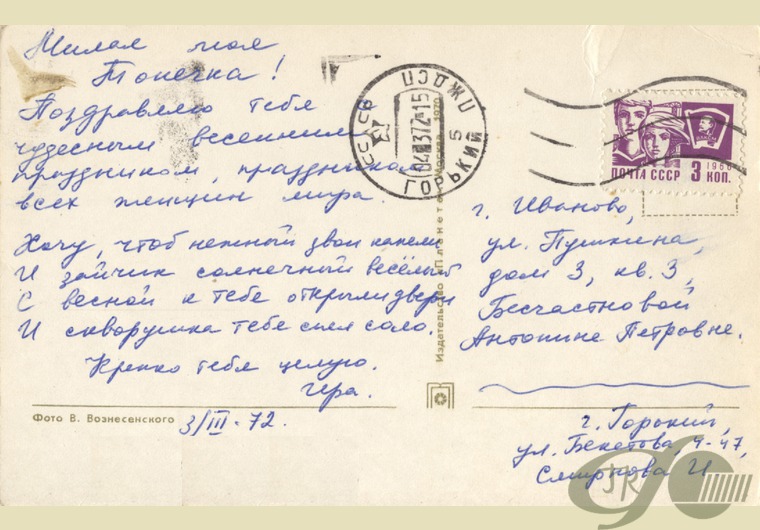 Милая моя
Тонечка!
Поздравляю тебя
чудесным весенним
праздником, праздником
всех женщин мира.
Хочу, чтоб нежный звон капели
И зайчик солнечный весёлый
С весной к тебе открыли двери
И скворушка тебе спел соло.
Крепко тебя целую.
Ира.
Фото В. Вознесенского
3/III-72.
Издательство «Планета» Москва 1970
СССР
ГОРЬКИЙ
5
ПОЧТА СССР 3 КОП.
1966
г. Иваново,
ул. Пушкина,
дом 3, кв. 3,
Бесчастновой
Антонине Петровне.
г. Горький,
ул. Бекетова, 4-47,
Смирнова И
JR